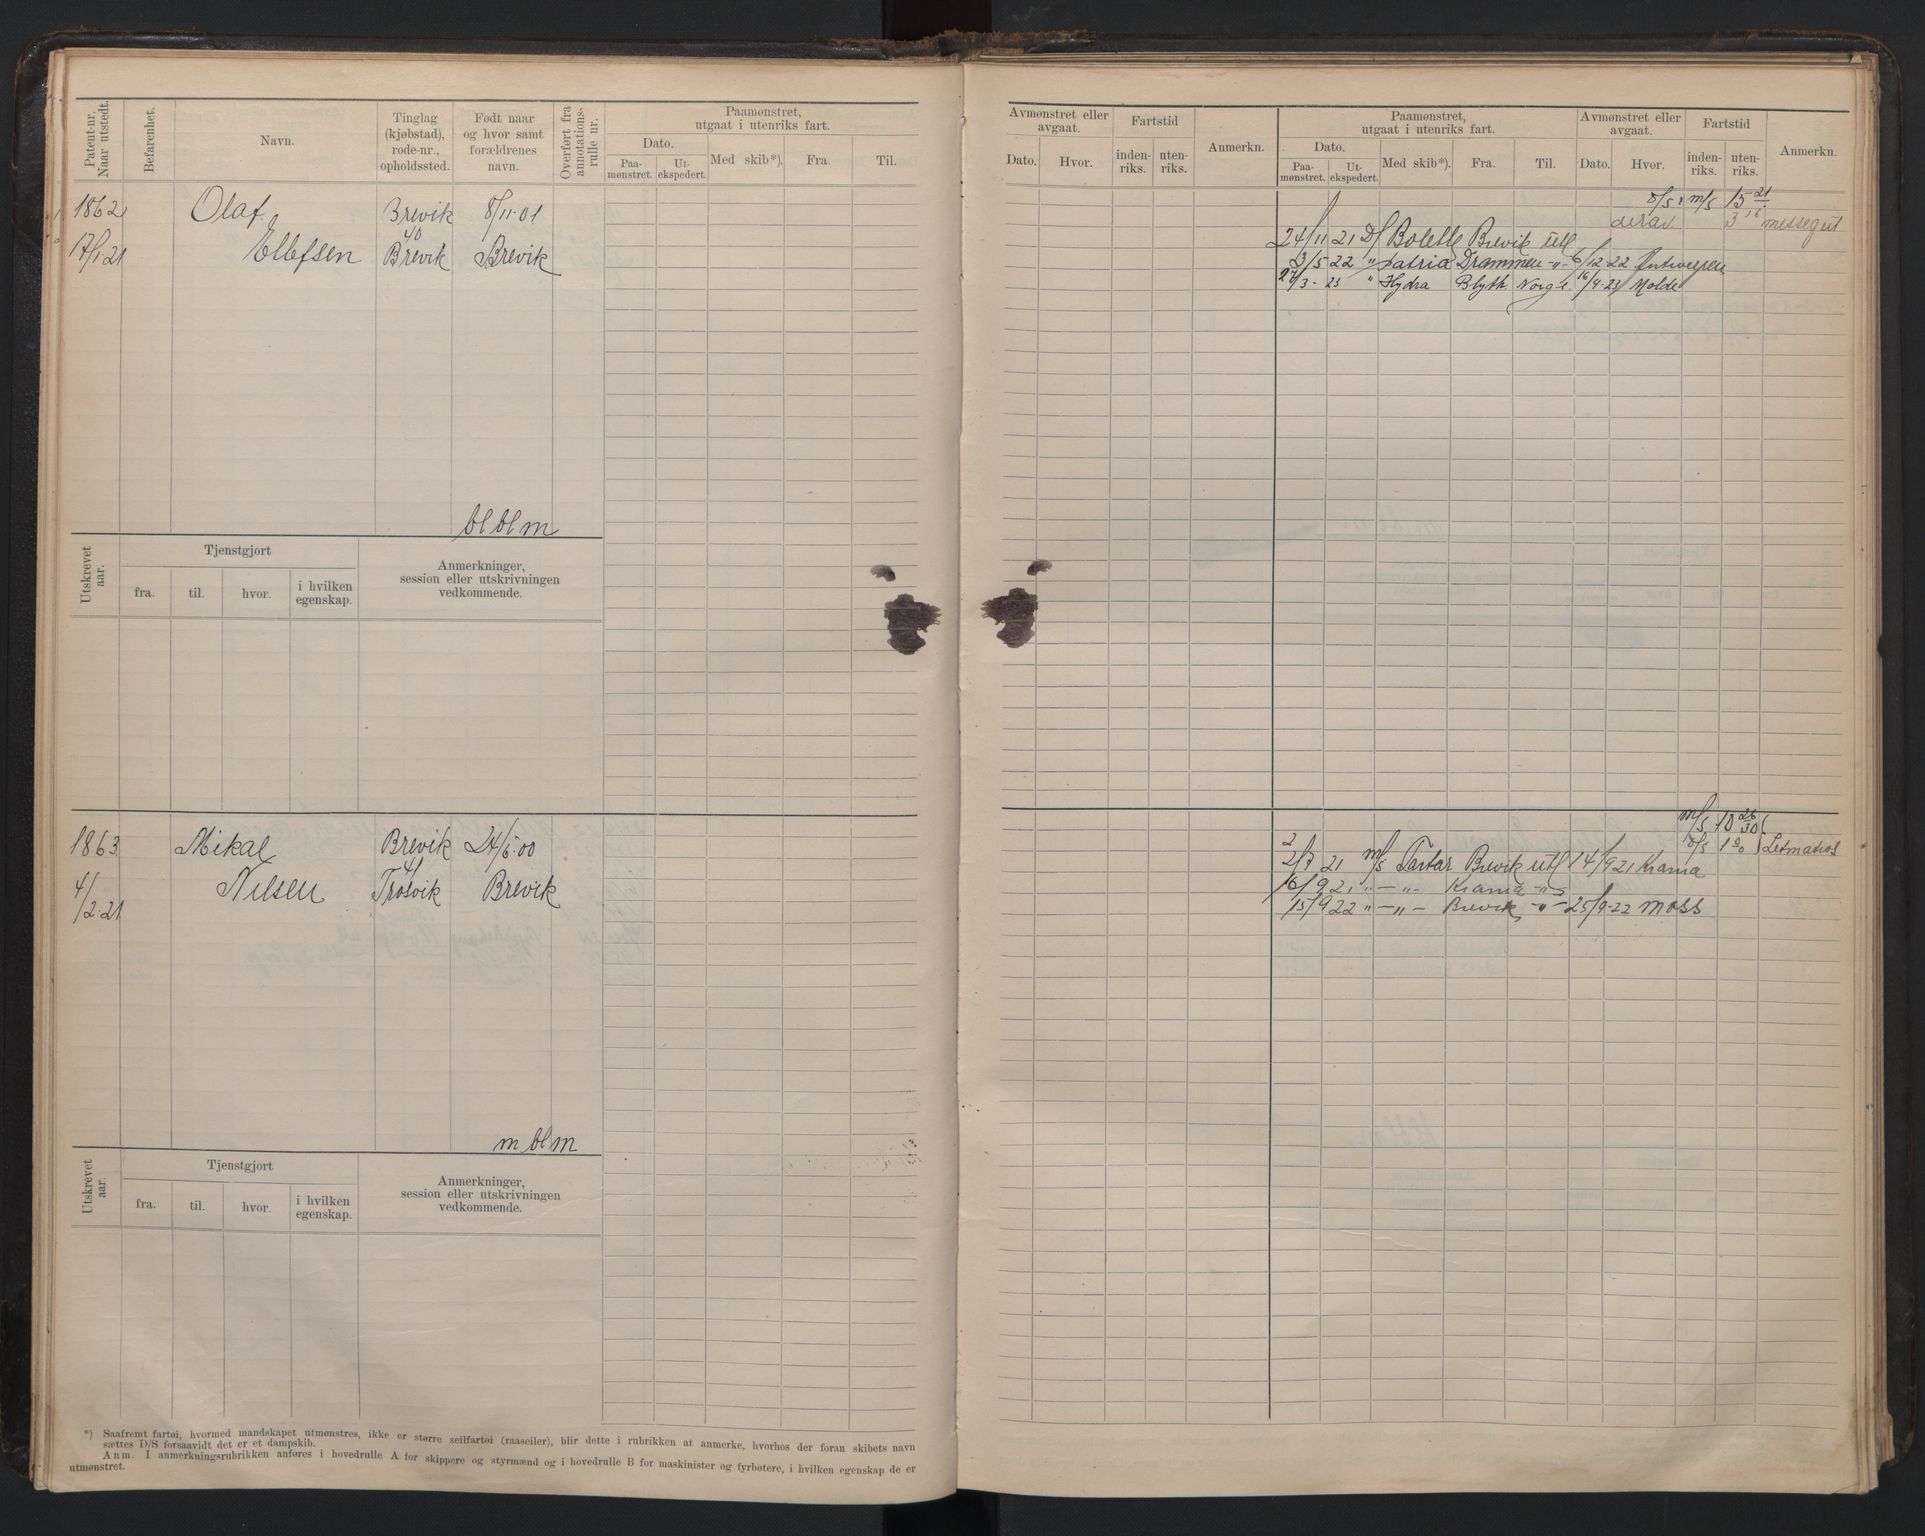 Patent-nr. Naar utstedt.
Befarenhet.
Navn.
Tinglag (kjøbstad), rode-nr., opholdssted.
Født naar og hvor samt forældrenes navn.
Overført fra annotations-rulle nr.
Paamønstret, utgaat i utenriks fart.
Dato.
Paa-mønstret.
Ut-ekspedert.
Med skib*).
Fra.
Til.
1862 Olaf Brevik 8/11-01
40
17/1 21 Ellefsen Brevik Brevik
bl bl m
Utskrevet aar.
Tjenstgjort
fra. til. hvor. i hvilken egenskap.
Anmerkninger, session eller utskrivningen vedkommende.
1863 Mikal Brevik 24/5-00
41
4/2-21 Nilsen Trosvik Brevik
m bl m
Utskrevet aar.
Tjenstgjort
fra. til. hvor. i hvilken egenskap.
Anmerkninger, session eller utskrivningen vedkommende.
*) Saafremt fartøi, hvormed mandskapet utmønstres, ikke er større seilfartøi (raaseiler), blir dette i rubrikken at anmerke, hvorhos der foran skibets navn
sættes D/S forsaavidt det er et dampskib.
Anm. I anmerkningsrubrikken anføres i hovedrulle A for skippere og styrmænd og i hovedrulle B for maskinister og fyrbøtere, i hvilken egenskap de er
utmønstret.
Avmønstret eller avgaat.
Dato. Hvor.
Fartstid
inden-riks. uten-riks.
Anmerkn.
Paamønstret, utgaat i utenriks fart.
Dato.
Paa-mønstret. Ut-ekspedert.
Med skib*). Fra. Til.
Avmønstret eller avgaat.
Dato. Hvor.
Fartstid
inden-riks. uten-riks.
Anmerkn.
m/s 15 21
derav 3 16 messegut
24/11 21 D/ Bolette Brevik utl
3/5-22 " Patria Drammen -"- 6/12-22 Antwerpen
27/3-23 " Hydra Blyth Norge 16/9-23 Molde
m/s 18 26/30
1 Letmatros
2/7 21 m/s Tartar Brevik utl 14/9 21 Krania
16/9 21 "-"- Krania -"-
15/9 22 "-"- Brevik -"- 25/9-22 Moss